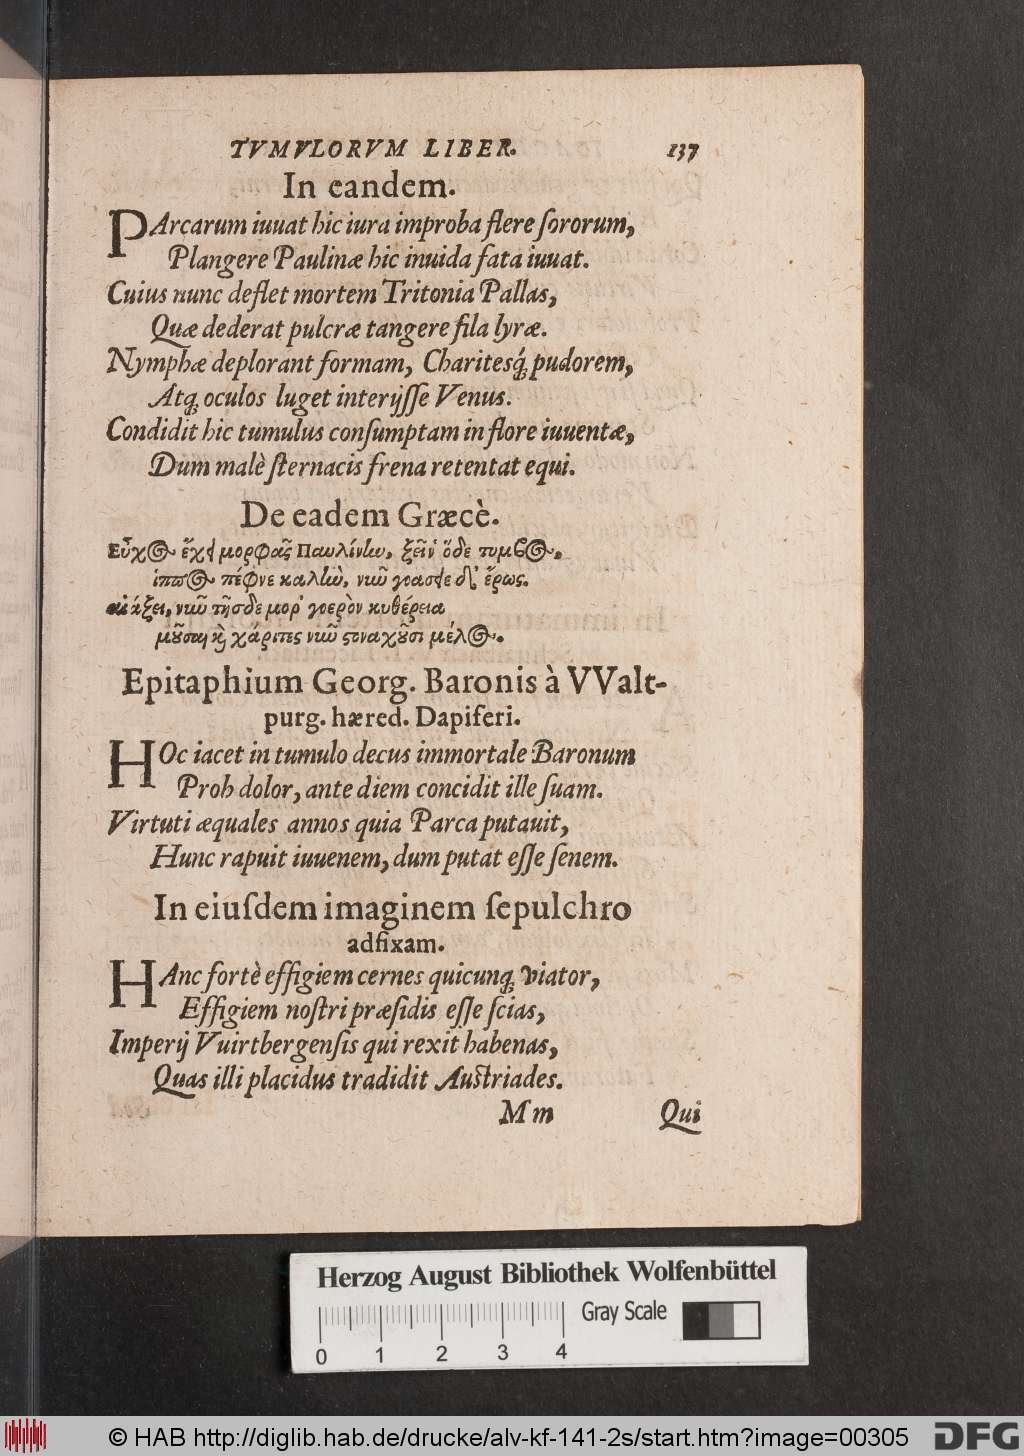 TVMVLORVM LIBER. 137
In eandem.
PArcarum iuuat hic iura improba flere ſororum,
Plangere Paulinæ hic inuida fata iuuat.
Cuius nunc deflet mortem Tritonia Pallas,
Quæ dederat pulcræ tangere fila lyræ.
Nymphæ deplorant formam, Charitesq́; pudorem,
Atq; oculos luget interijſſe Venus.
Condidit hic tumulus conſumptam in flore iuuentæ,
Dum malè ſternacis frena retentat equi.
De eadem Græcè.
μορφᾶς Παυλίνην, ξεῖν' ὅδε
πέφνε καλὴν, νιῶ ἔρως.
τῆσδε κυθέρεια
χάριτες
Epitaphium Georg. Baronis à VValt-
purg. hæred. Dapiferi.
HOc iacet in tumulo decus immortale Baronum
Proh dolor, ante diem concidit ille ſuam.
Virtuti æquales annos quia Parca putauit,
Hunc rapuit iuuenem, dum putat eſſe ſenem.
In eiuſdem imaginem ſepulchro
adfixam.
HAnc fortè effigiem cernes quicunq; viator,
Effigiem noſtri præſidis eſſe ſcias,
Imperij Vuirtbergenſis qui rexit habenas,
Quas illi placidus tradidit Auſtriades.
Mm Qui
Herzog August Bibliothek Wolfenbüttel
Gray Scale
0 1 2 3 4
© HAB http://diglib.hab.de/drucke/alv-kf-141-2s/start.htm?image=00305 DFG